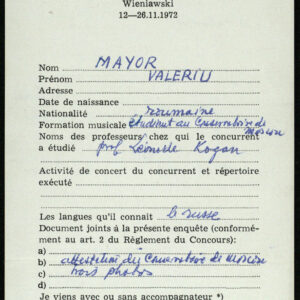 Wieniawski
12—26.11.1972
Nom MAYOR
Prénom VALERIU
Adresse
Date de naissance
Nationalité roumaine
Formation musicale étudiant au Conservatoire de Moscou
Noms des professeurs chez qui le concurrent
a étudié prof. Léonide Kogan
Activité de concert du concurrent et répertoire
exécuté
Les langues qu'il connait le russe
Document joints à la présente enquête (conformé-
ment au art. 2 du Règlement du Concours):
a)
b) attestation du Conservatoire de Moscou
c) trois photos
d)
Je viens avec ou sans accompagnateur *)